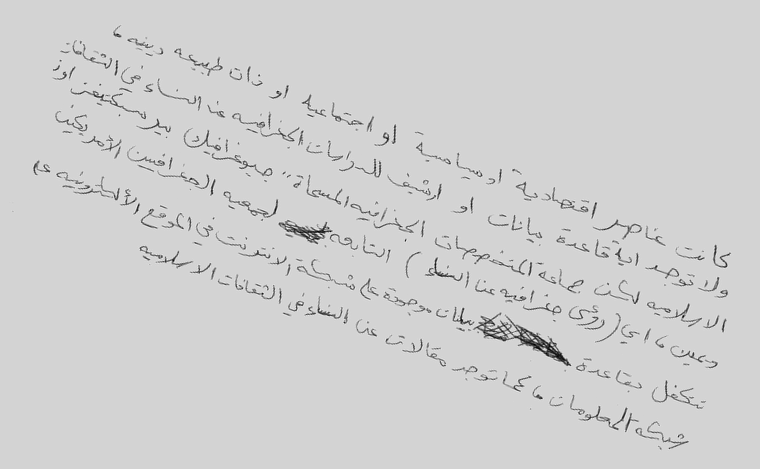 كانت عناصر اقتصادية او سياسية او اجتماعية او ذات طبيعه دينيه ،
ولا توجد اية قاعدة بيانات او ارشيف للدراسات الجغرافيه عن النساء في الثقافات
الاسلاميه لكن جماعة المتخصصات الجغرافيه المسماة " جيوغرافيك بيرسبكتيفز اون
ويمين ، اي ( رؤى جغرافيه عن النساء ) التابعه لجمعيه الجغرافيين الأمريكيين
تتكفل بقاعدة بيانات موجودة على شبكة الانترنت في الموقع الألكترونيه على
شبكة المعلومات ، كما توجد مقالات عن النساء في الثقافات الاسلاميه